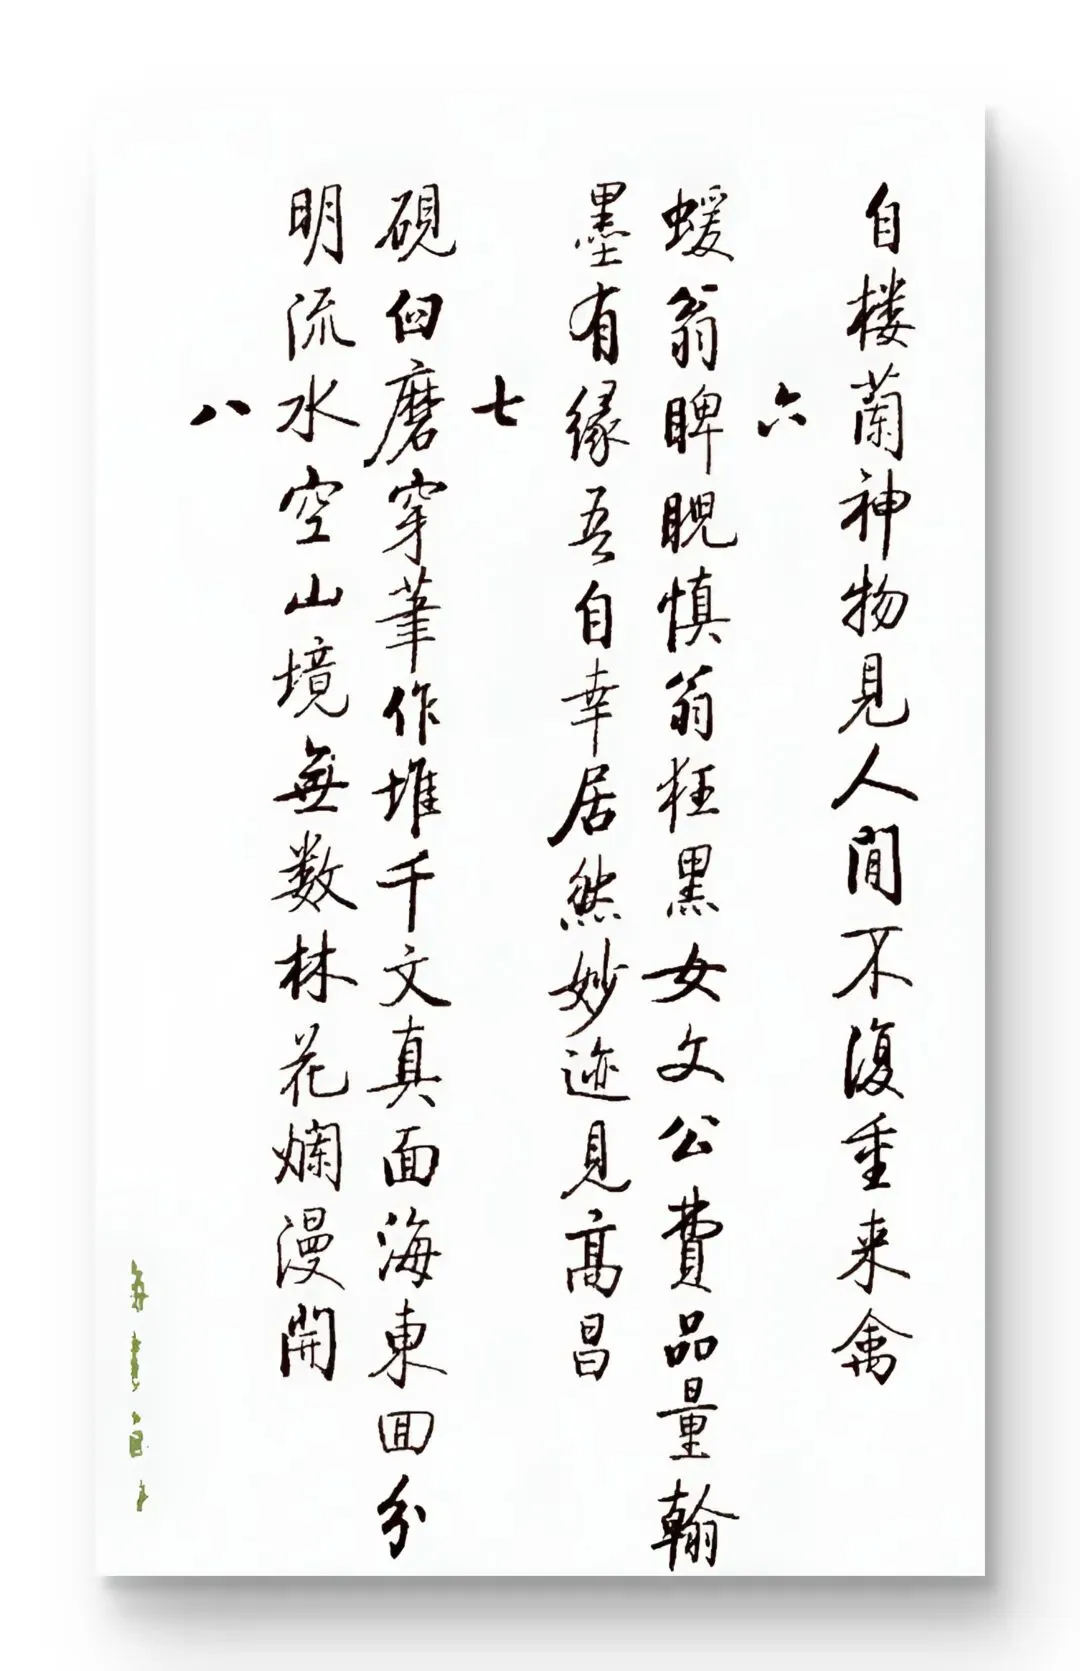 自楼蘭神物見人間不復重来禽
六
蝯翁睥睨慎翁狂黑女文公費品量翰
墨有緣吾自幸居然妙迹見高昌
七
硯臼磨穿筆作堆千文真面海東回分
明流水空山境無数林花爛漫開
八